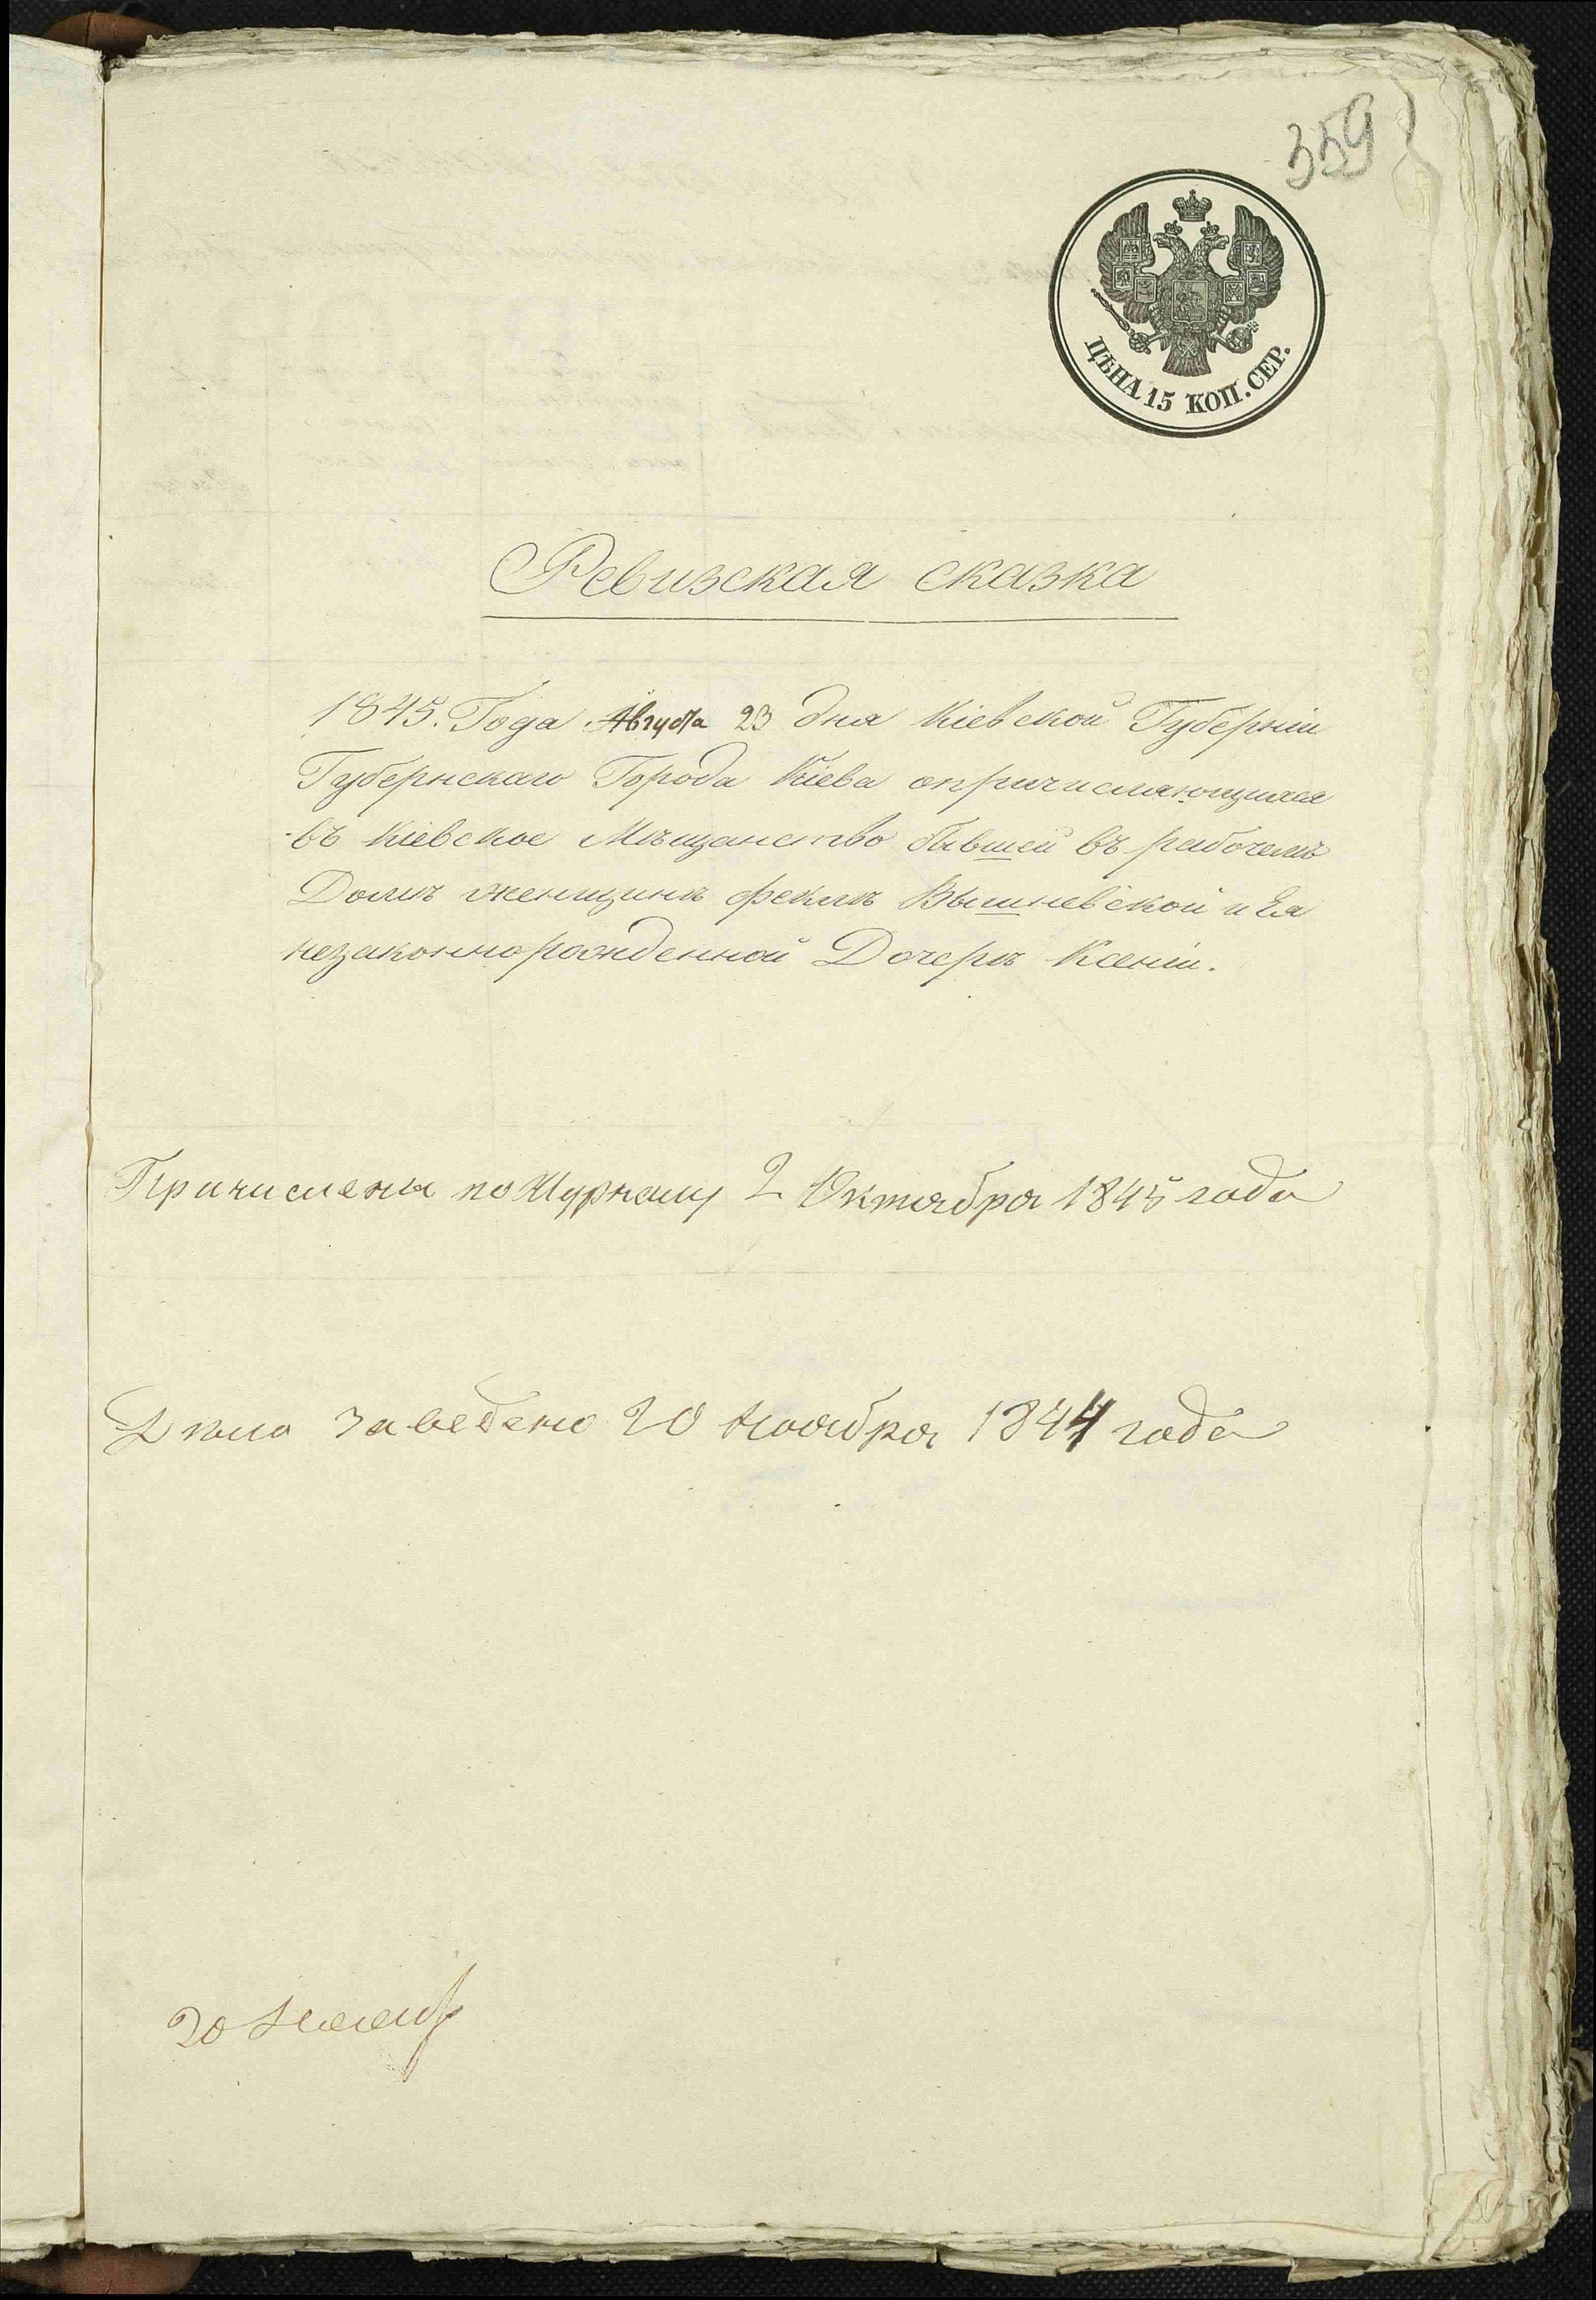 359
ЦѢНА 15 КОП. СЕР.
Ревизская сказка
1845. Года Августа 23 дня Кіевской Губерніи
Губернскаго Города Кіева о причисляющихся
въ Кіевское Мѣщанство бывшей въ рабочемъ
Домѣ женщинѣ Феклѣ Вышневской и Ея
незаконнорожденной Дочерѣ Ксеніи.
Причислены по Журналу 2 Октября 1845 года
Дѣло заведено 20 Ноября 1844 года
20